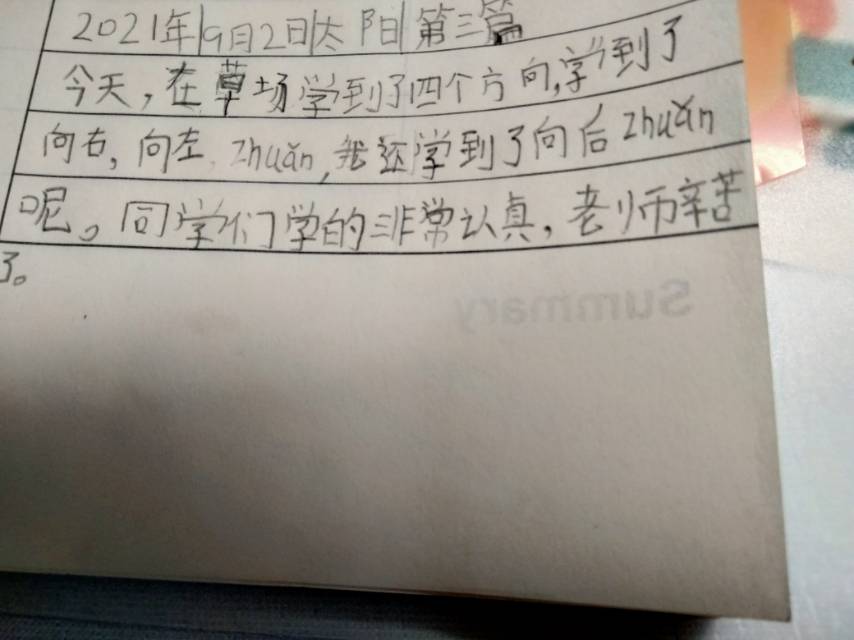 2021年|9月2日|太阳|第三篇
今天，在草场学到了四个方向，学到了
向右，向左，zhuǎn，我还学到了向后zhuǎn
呢。同学们学的非常认真，老师辛苦
了。
Summary